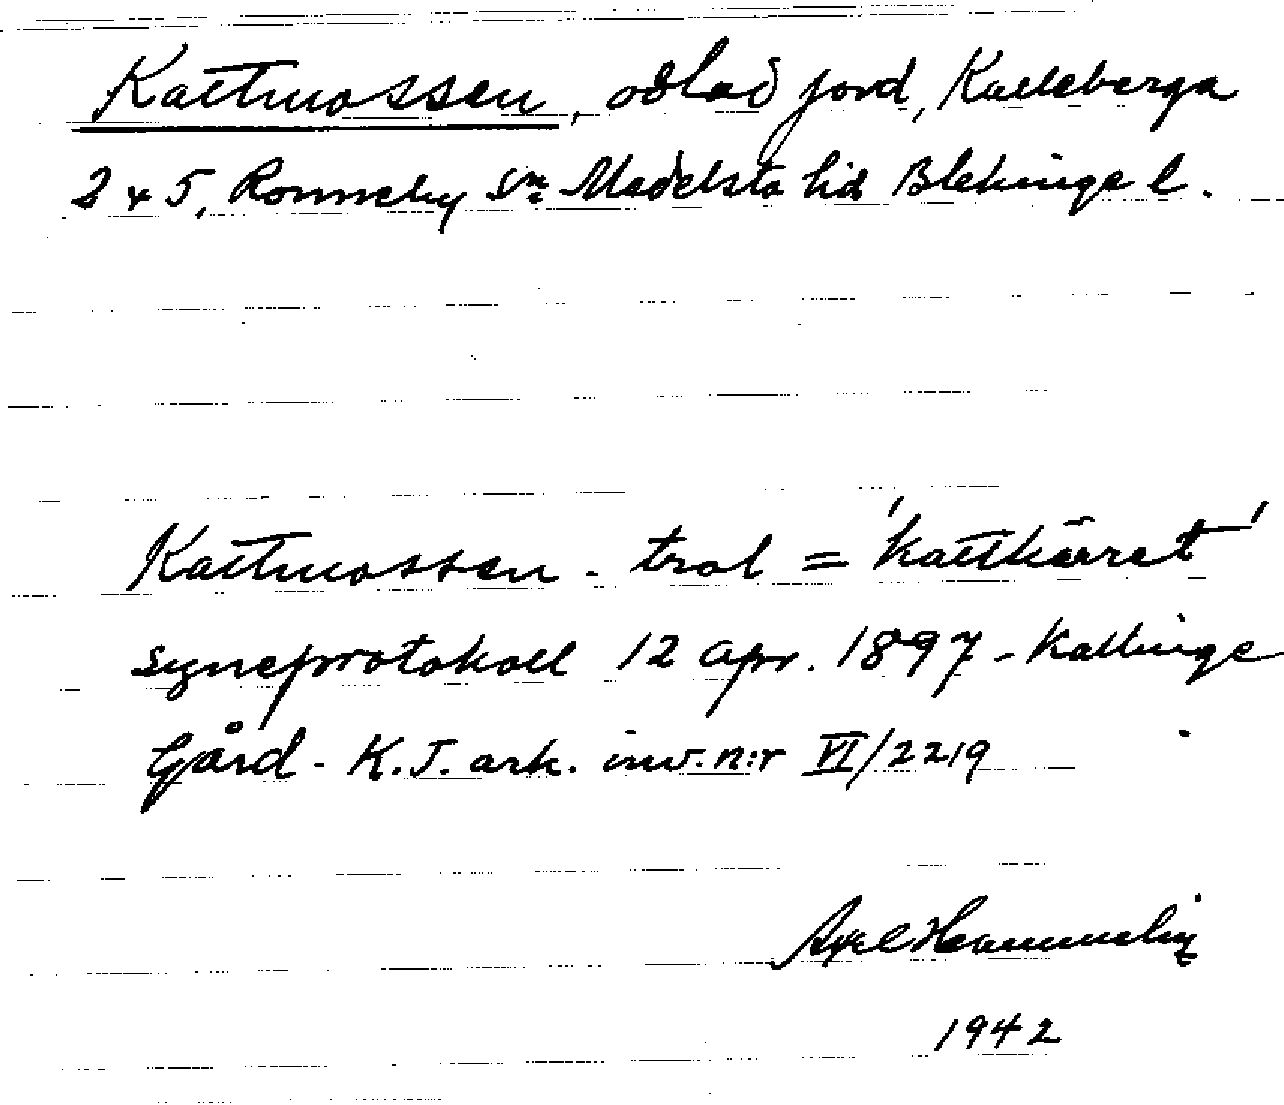 Kattmossen, odlad jord, Kalleberga
2 & 5, Ronneby sn Medelsta hd Blekinge l.
Kattmossen - trol = 'kattkärret'
syneprotokoll 12 apr. 1897 - Kallinge
Gård - K.J. ark. inv. n:r VI/2219
Axel
1942